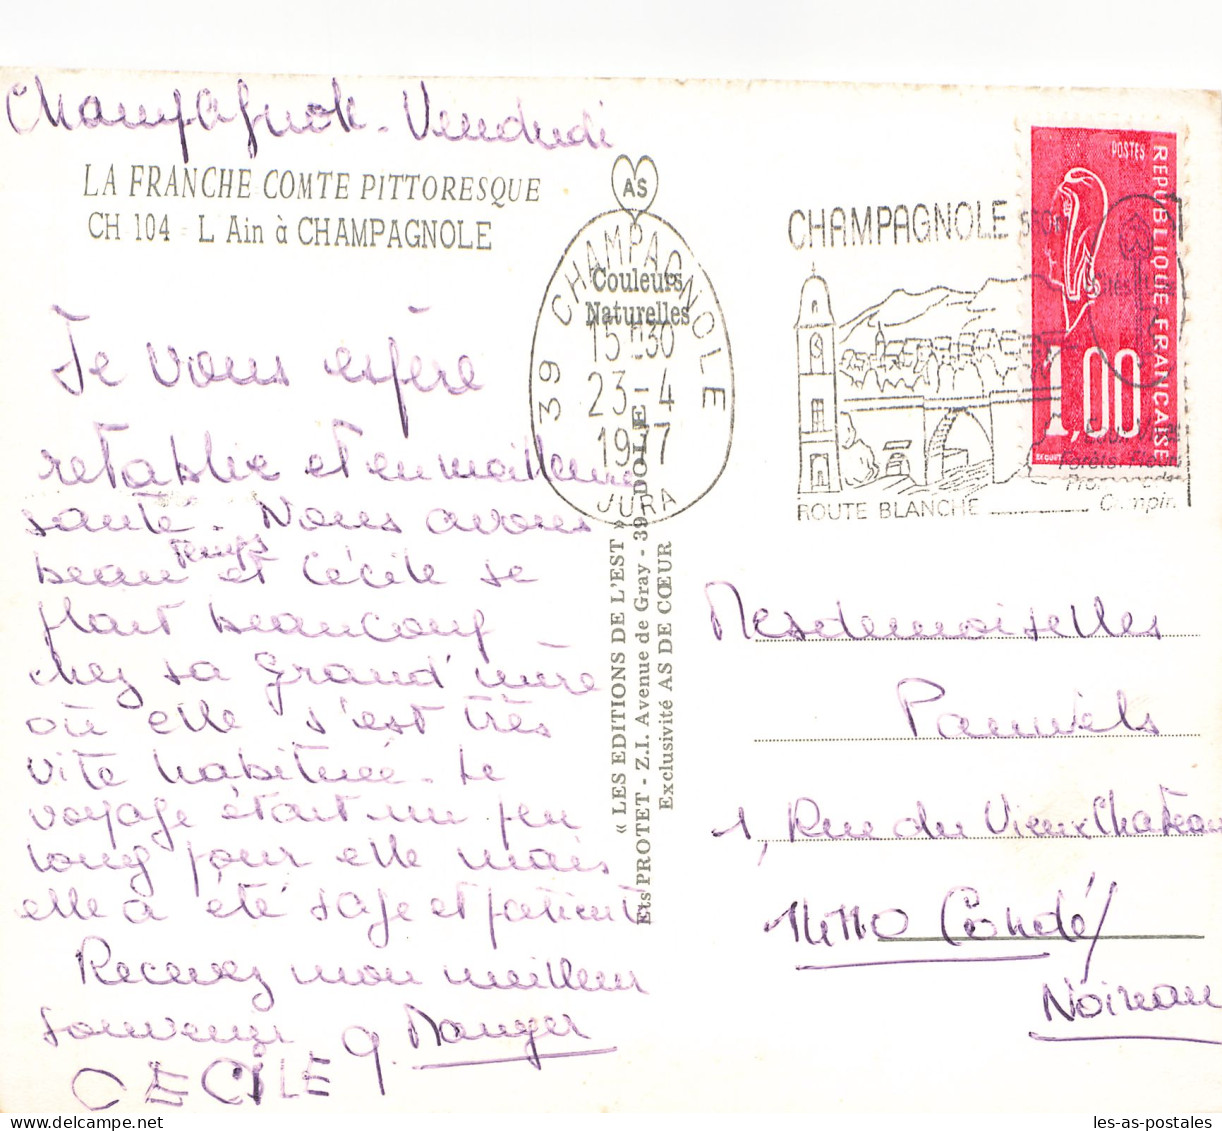 Champagnole - Vendredi
LA FRANCHE COMTE PITTORESQUE
CH 104 - L Ain à CHAMPAGNOLE
AS
Couleurs
Naturelles
39 CHAMPAGNOLE
15 H30
23-4
1977
JURA
CHAMPAGNOLE
ROUTE BLANCHE
POSTES
REPUBLIQUE FRANCAISE
1,00
Je vous espère
retablie et en meilleure
santé. Nous avons
beau temps et Cécile se
plait beaucoup
chez sa Grand'mère
où elle s'est très
vite habituée. Le
voyage était un peu
long pour elle mais
elle a été sage et patiente
Recevez mon meilleur
souvenir
CECILE
« LES EDITIONS DE L'EST »
Ets PROTET - Z.I. Avenue de Gray - 39 DOLE
Exclusivité AS DE CŒUR
Mesdemoiselles
Pauwels
1, Rue du Vieux Chateau
14110 Condé/
Noireau
les-as-postales